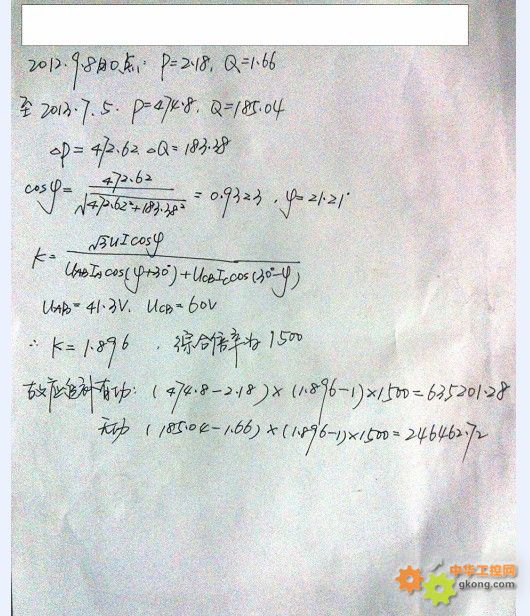 2012.9.8日0点: P=2.18, Q=1.66
至 2013.7.5. P=474.8, Q=185.04
△P=472.62 △Q=183.38
cosφ= 472.62 / √472.62²+183.38² = 0.9323, φ=21.21°
K= √3UIcosφ / UABIAcos(φ+30°)+UCBICcos(30°-φ)
UAB=41.3V. UCB=60V
∴ K=1.896 , 综合倍率为1500
故应追补有功: (474.8-2.18)×(1.896-1)×1500=635201.28
无功 (185.04-1.66)×(1.896-1)×1500=246462.72
中华工控网
gkong.com